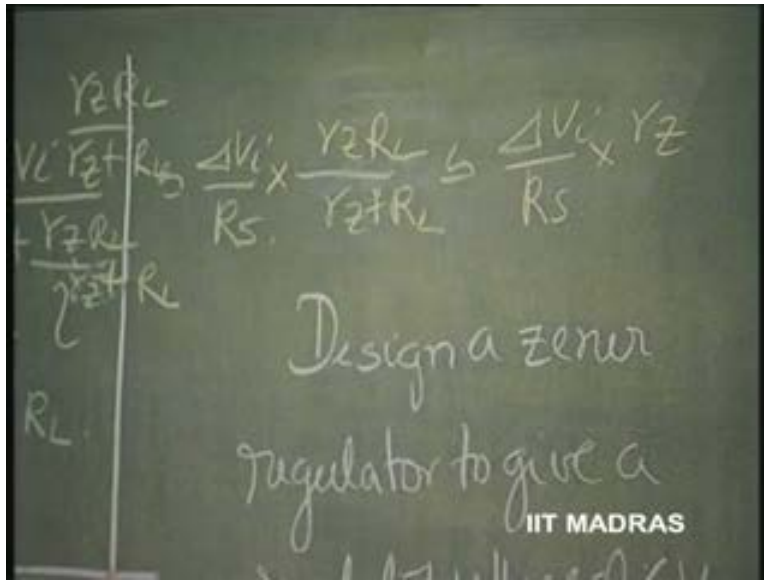 rzRL
Vi rz+RL ≃ ΔVi/Rs. × rzRL/rz+RL ≃ ΔVi/Rs × rz
+ rzRL
rz+RL
RL.
Design a zener
regulator to give a
IIT MADRAS